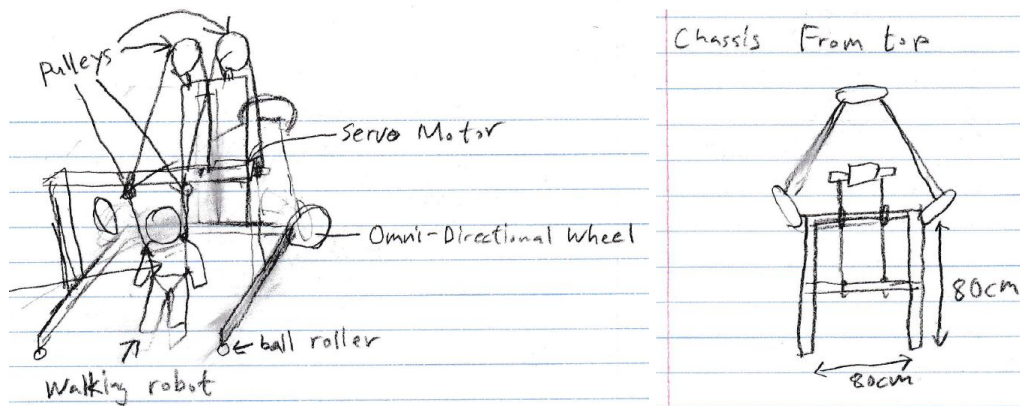 Pulleys
Servo Motor
Omni-Directional Wheel
ball roller
Walking robot
Chassis From top
80cm
80cm